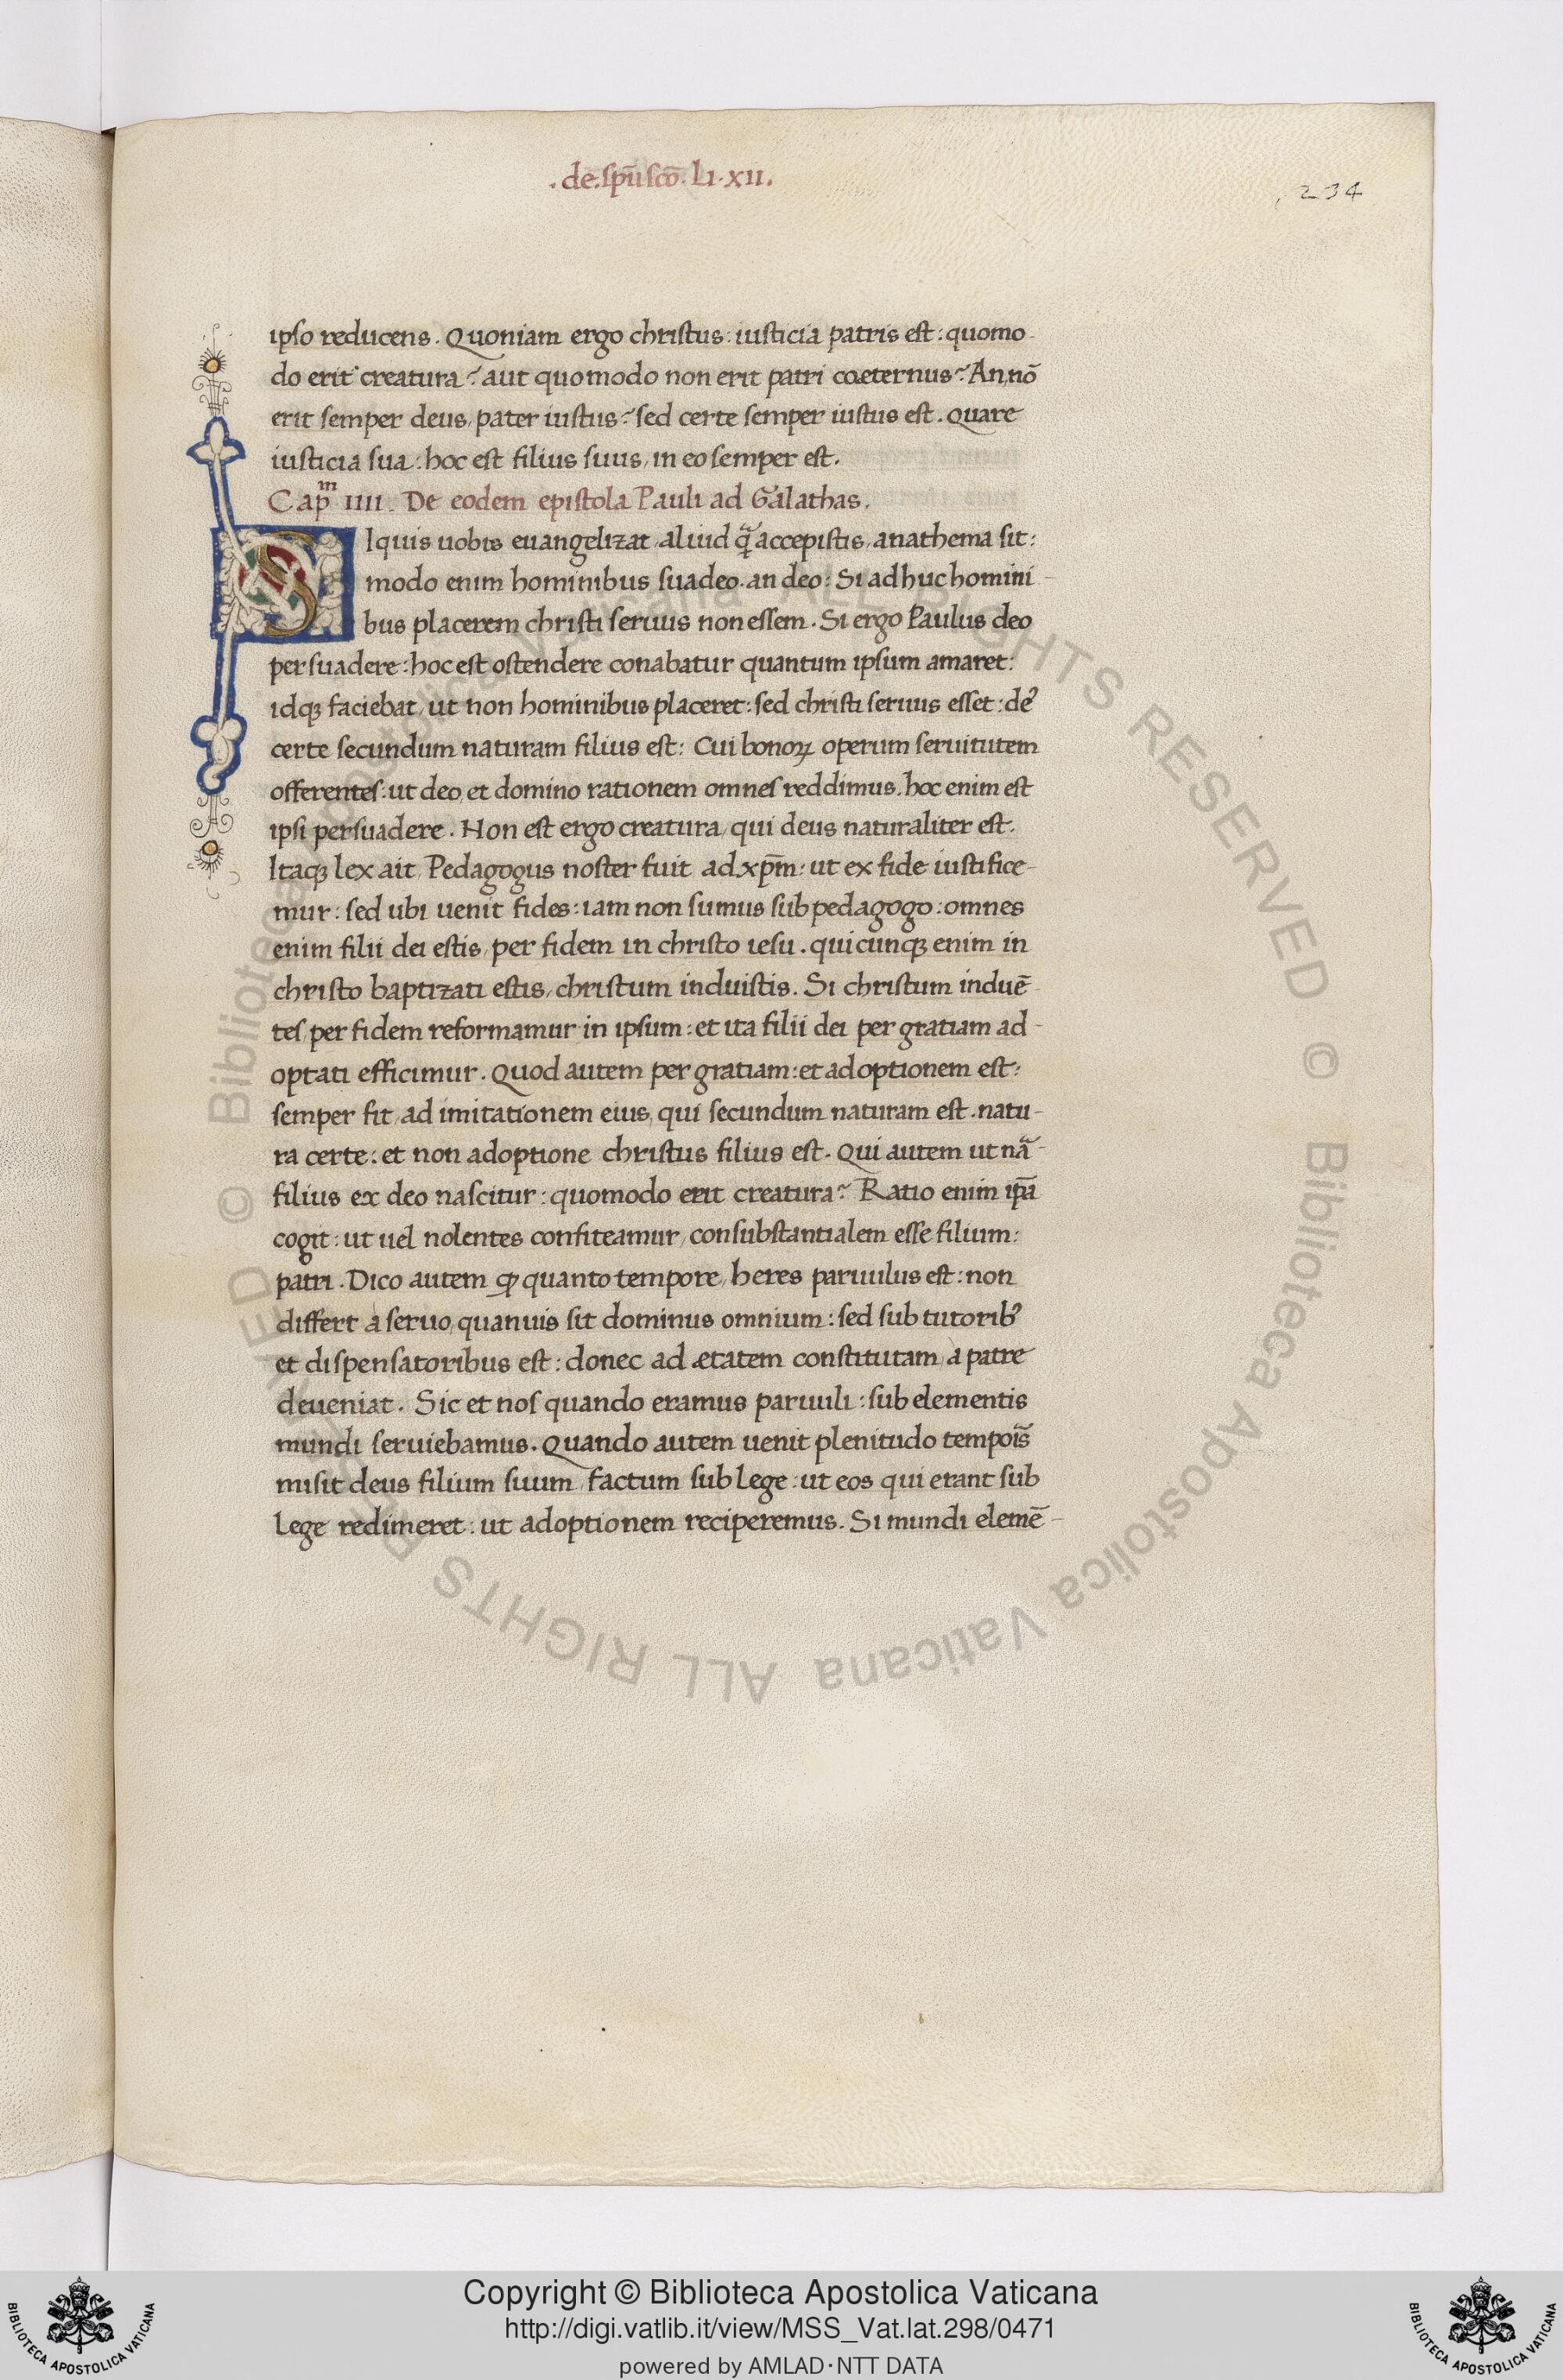 .de.sp̄u sc̄o. Li. xii.
234
ipso reducens. Quoniam ergo christus: iusticia patris est: quomo-
do erit creatura? aut quomodo non erit patri coeternus? An nō
erit semper deus, pater iustus? sed certe semper iustus est. Quare
iusticia sua: hoc est filius suus, in eo semper est.
Cap̄ᵐ IIII. De eodem epistola Pauli ad Galathas.
SIquis uobis euangelizat, aliud q̃ accepistis, anathema sit:
modo enim hominibus suadeo. an deo: Si adhuc homini-
bus placerem christi seruus non essem. Si ergo Paulus deo
persuadere: hoc est ostendere conabatur quantum ipsum amaret:
idqꝫ faciebat, ut non hominibus placeret: sed christi seruus esset: deꝰ
certe secundum naturam filius est: Cui bonoꝝ operum seruitutem
offerentes: ut deo, et domino rationem omnes reddimus. hoc enim est
ipsi persuadere. Non est ergo creatura, qui deus naturaliter est.
Itaqꝫ lex ait, Pedagogus noster fuit ad xp̄m: ut ex fide iustifice-
mur: sed ubi uenit fides: iam non sumus sub pedagogo: omnes
enim filii dei estis, per fidem in christo iesu. quicunqꝫ enim in
christo baptizati estis, christum induistis. Si christum induē-
tes, per fidem reformamur in ipsum: et ita filii dei per gratiam ad-
optati efficimur. Quod autem per gratiam: et adoptionem est:
semper fit, ad imitationem eius, qui secundum naturam est. natu-
ra certe: et non adoptione christus filius est. Qui autem ut nã-
filius ex deo nascitur: quomodo erit creatura? Ratio enim ip̄a
cogit: ut uel nolentes confiteamur, consubstantialem esse filium:
patri. Dico autem ꝙ quanto tempore, heres paruulus est: non
differt a seruo, quanuis sit dominus omnium: sed sub tutoribꝰ
et dispensatoribus est: donec ad ætatem constitutam, a patre
deueniat. Sic et nos quando eramus paruuli: sub elementis
mundi seruiebamus. Quando autem uenit plenitudo tempoĩs
misit deus filium suum, factum sub lege: ut eos qui erant sub
lege redimeret: ut adoptionem reciperemus. Si mundi elemē-
© Biblioteca Apostolica Vaticana ALL RIGHTS RESERVED © Biblioteca Apostolica Vaticana ALL RIGHTS RESERVED
Copyright © Biblioteca Apostolica Vaticana
http://digi.vatlib.it/view/MSS_Vat.lat.298/0471
powered by AMLAD·NTT DATA
BIBLIOTECA APOSTOLICA VATICANA
BIBLIOTECA APOSTOLICA VATICANA